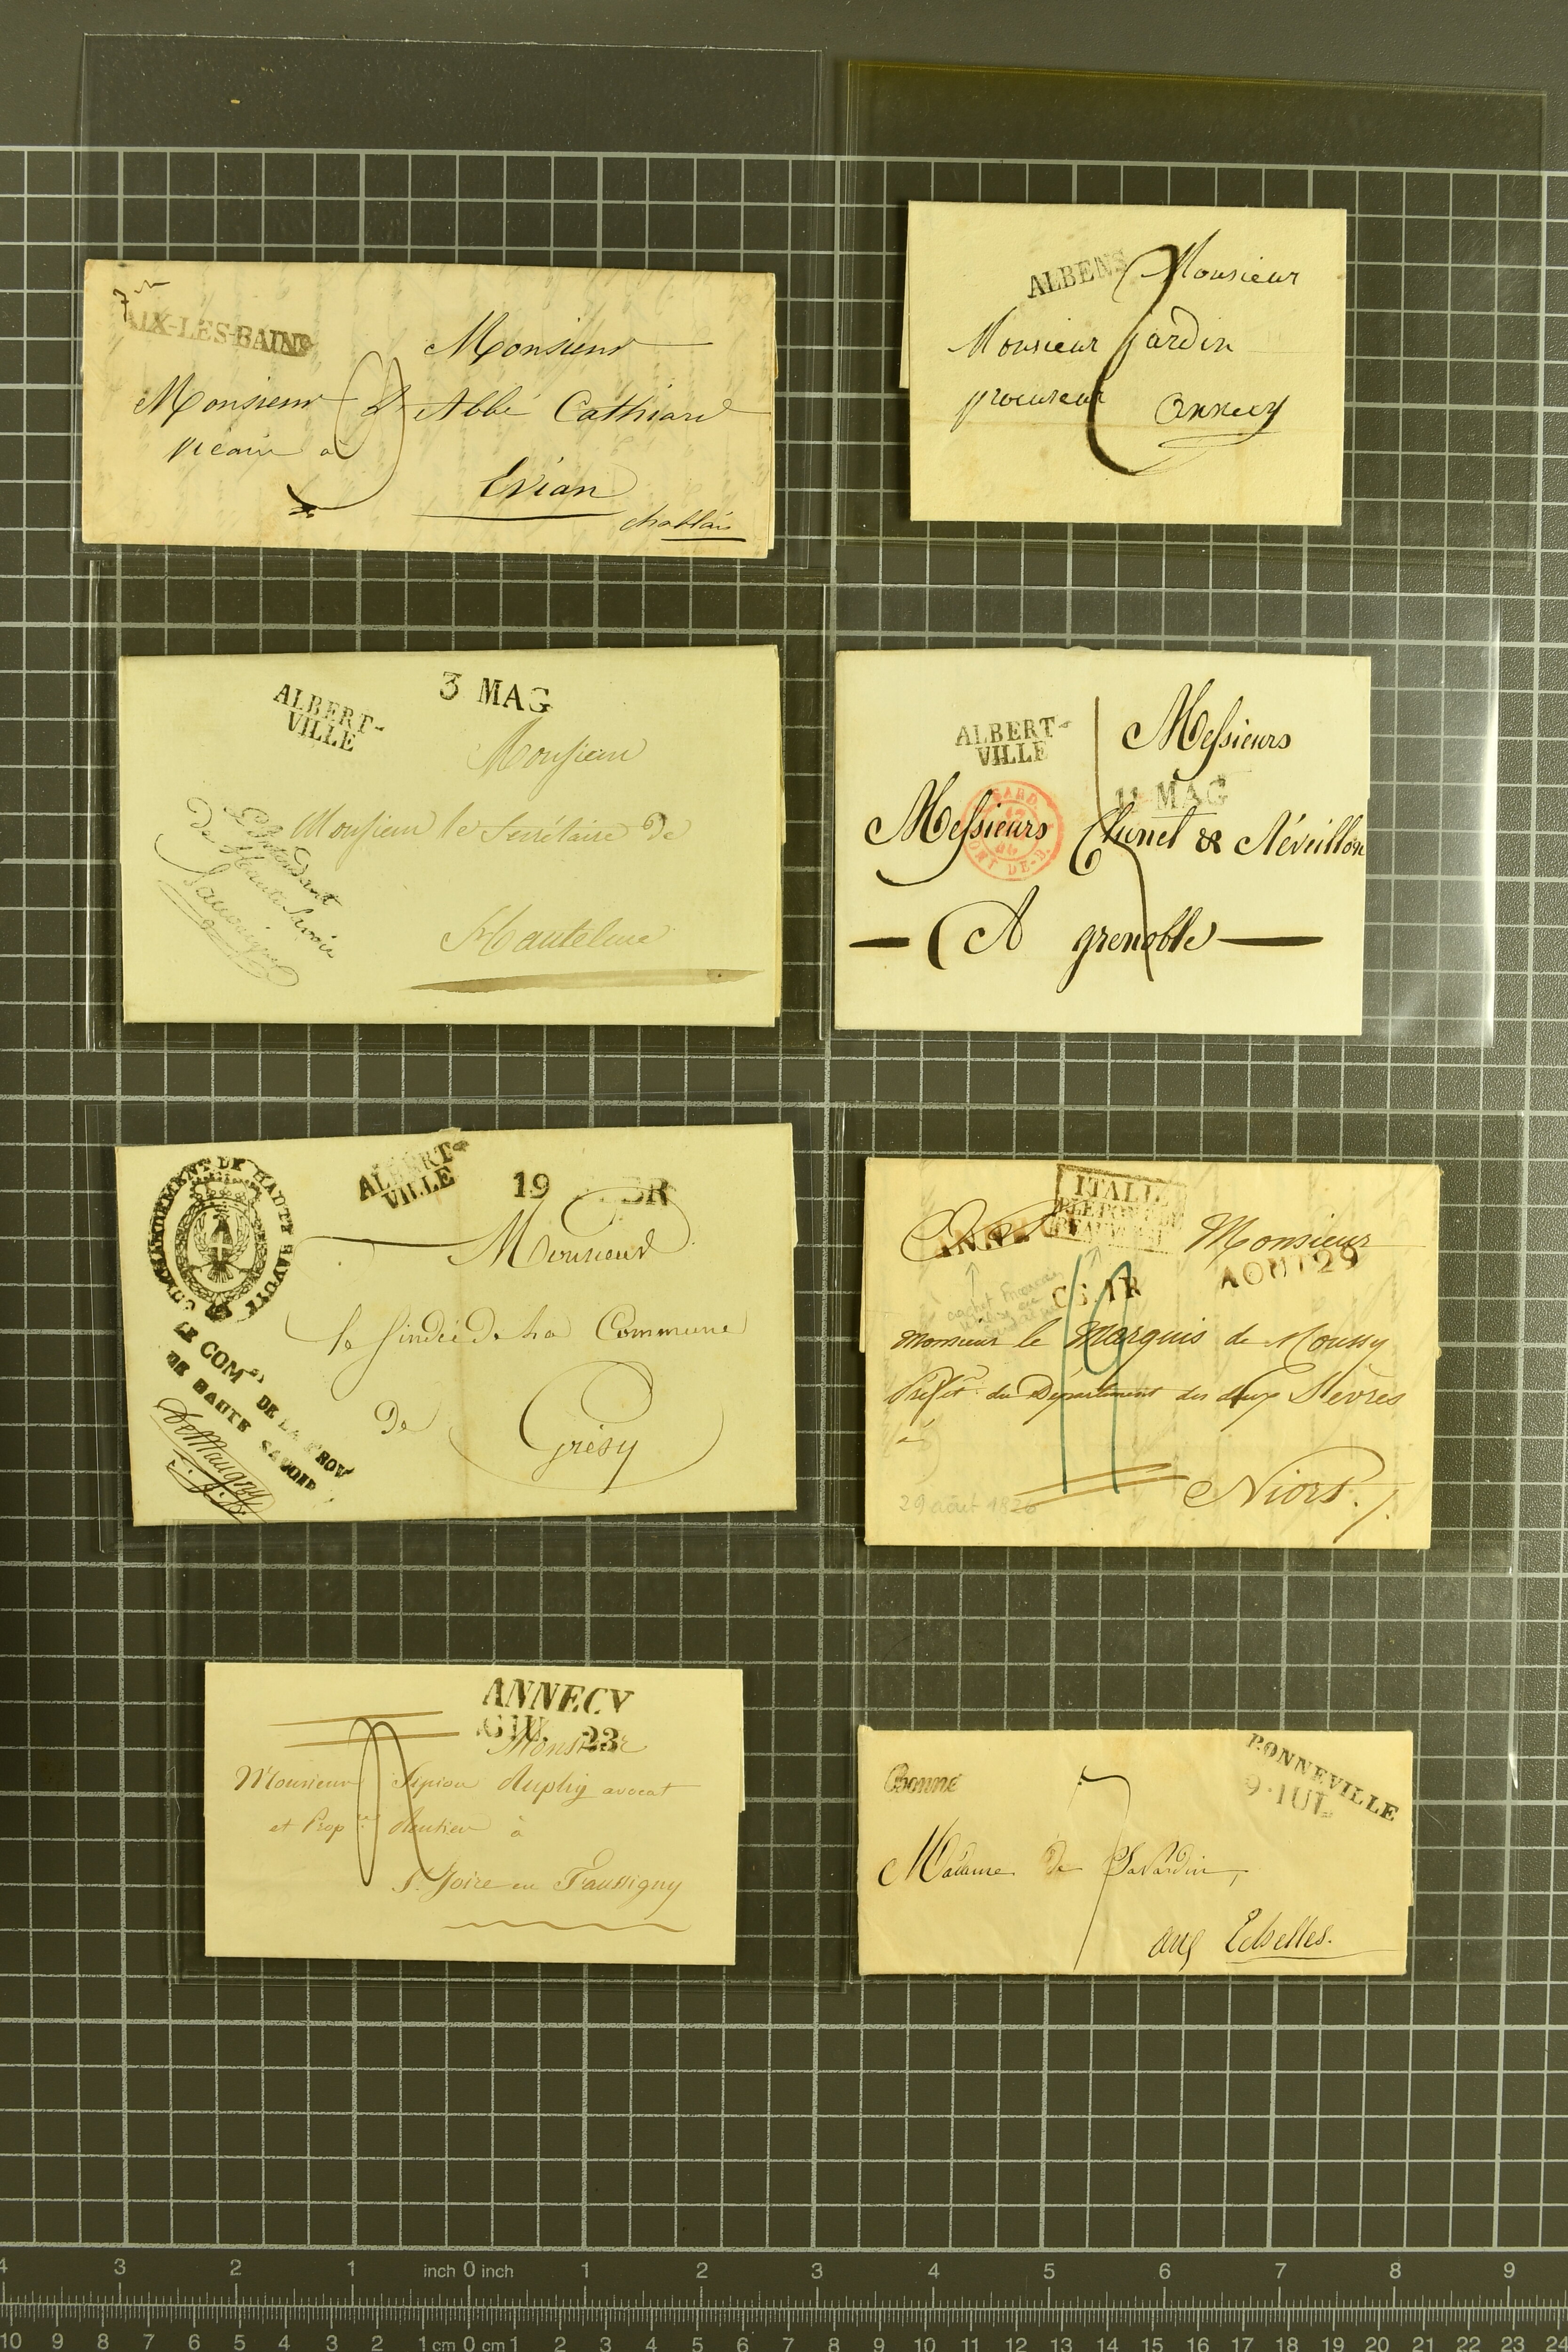 AIX-LES-BAINS
Monsieur
Monsieur L'Abbé Cathiard
vicaire à
Evian
chablais
ALBENS
Monsieur
Monsieur jardin
procureur
annecy
ALBERT-
VILLE
3 MAG
Monsieur
Monsieur le Secrétaire de
L'Intendant
de Haute Savoie
Hauteluce
ALBERT-
VILLE
Messieurs
11 MAG
Messieurs Chunet & Réveillon
SARD.
PONT-DE-B.
A grenoble
COMMANDEMENT DE HAUTE SAVOYE
ALBERT-
VILLE
19
Monsieur
le Sindic de la Commune
De
Grésy
LE COM.
DE LA PROV
DE HAUTE SAVOIE
De Maugny
ITALIE
PAR LE PONT DE
BEAUVOISIN
Monsieur
AOUT 29
C.S. 1R
cachet
Monsieur le Marquis de Moussy
Préfet du Département des deux Sèvres
à
29 août 1826
Niort.
ANNECY
GIU. 23
Monsieur
Monsieur Sipion Duplig avocat
et Prop.re Rentier à
St. Joire en Faussigny
Bonne
BONNEVILLE
9. IUL
Madame De Savardin,
aux Echelles.
4 3 2 1 inch 0 inch 1 2 3 4 5 6 7 8 9
10 9 8 7 6 5 4 3 2 1 cm 0 cm 1 2 3 4 5 6 7 8 9 10 11 12 13 14 15 16 17 18 19 20 21 22 23 24